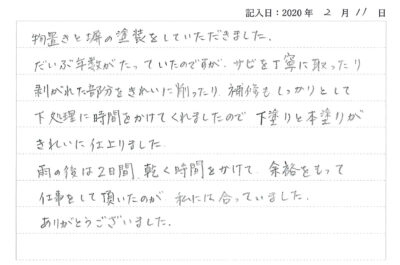 記入日：2020年 2月 11日
物置きと塀の塗装をしていただきました。
だいぶ年数がたっていたのですが、サビを丁寧に取ったり
剥がれた部分をきれいに削ったり、補修もしっかりとして
下処理に時間をかけてくれましたので下塗りと本塗りが
きれいに仕上りました。
雨の後は2日間、乾く時間をかけて、余裕をもって
仕事をして頂いたのが、私には合っていました。
ありがとうございました。